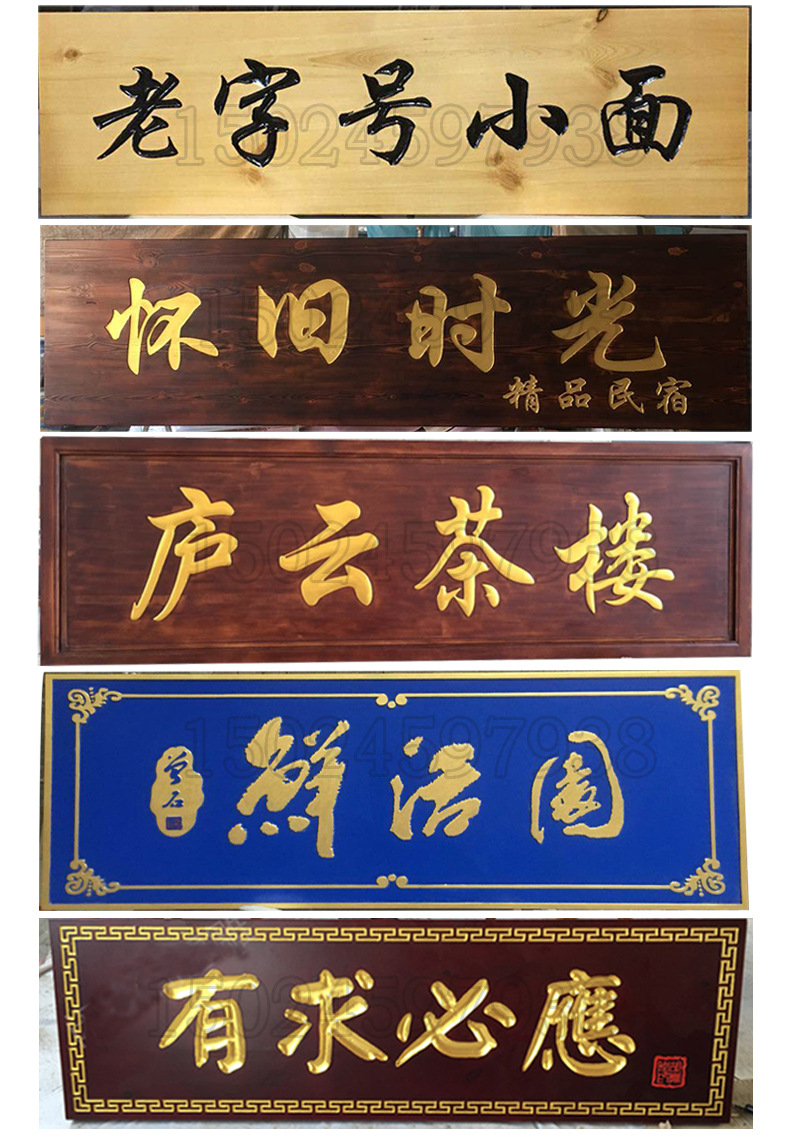 老字号小面
15024597938
怀旧时光
精品民宿
庐云茶楼
15024597938
鲜活园
曾石
15024597938
有求必應
15024597938